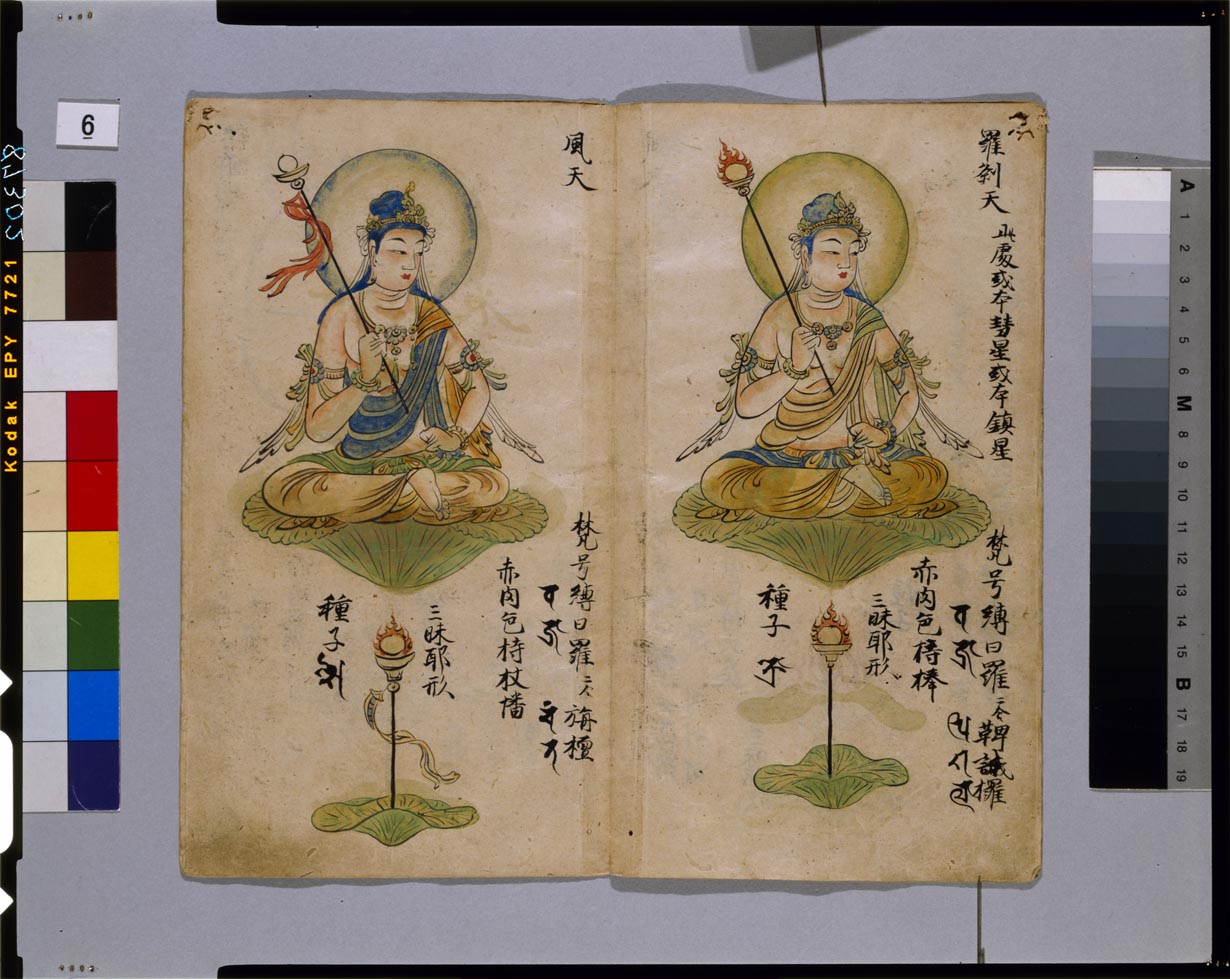 羅刹天
此處或本彗星或本鎮星
梵号縛曰羅二合鞞誐欏
赤肉色持棒
三昧耶形
種子
風天
梵号縛曰羅二合旃檀
赤肉色持杖幡
三昧耶形
種子
6
Kodak EPY 7721
A
1
2
3
4
5
6
M
8
9
10
11
12
13
14
15
B
17
18
19